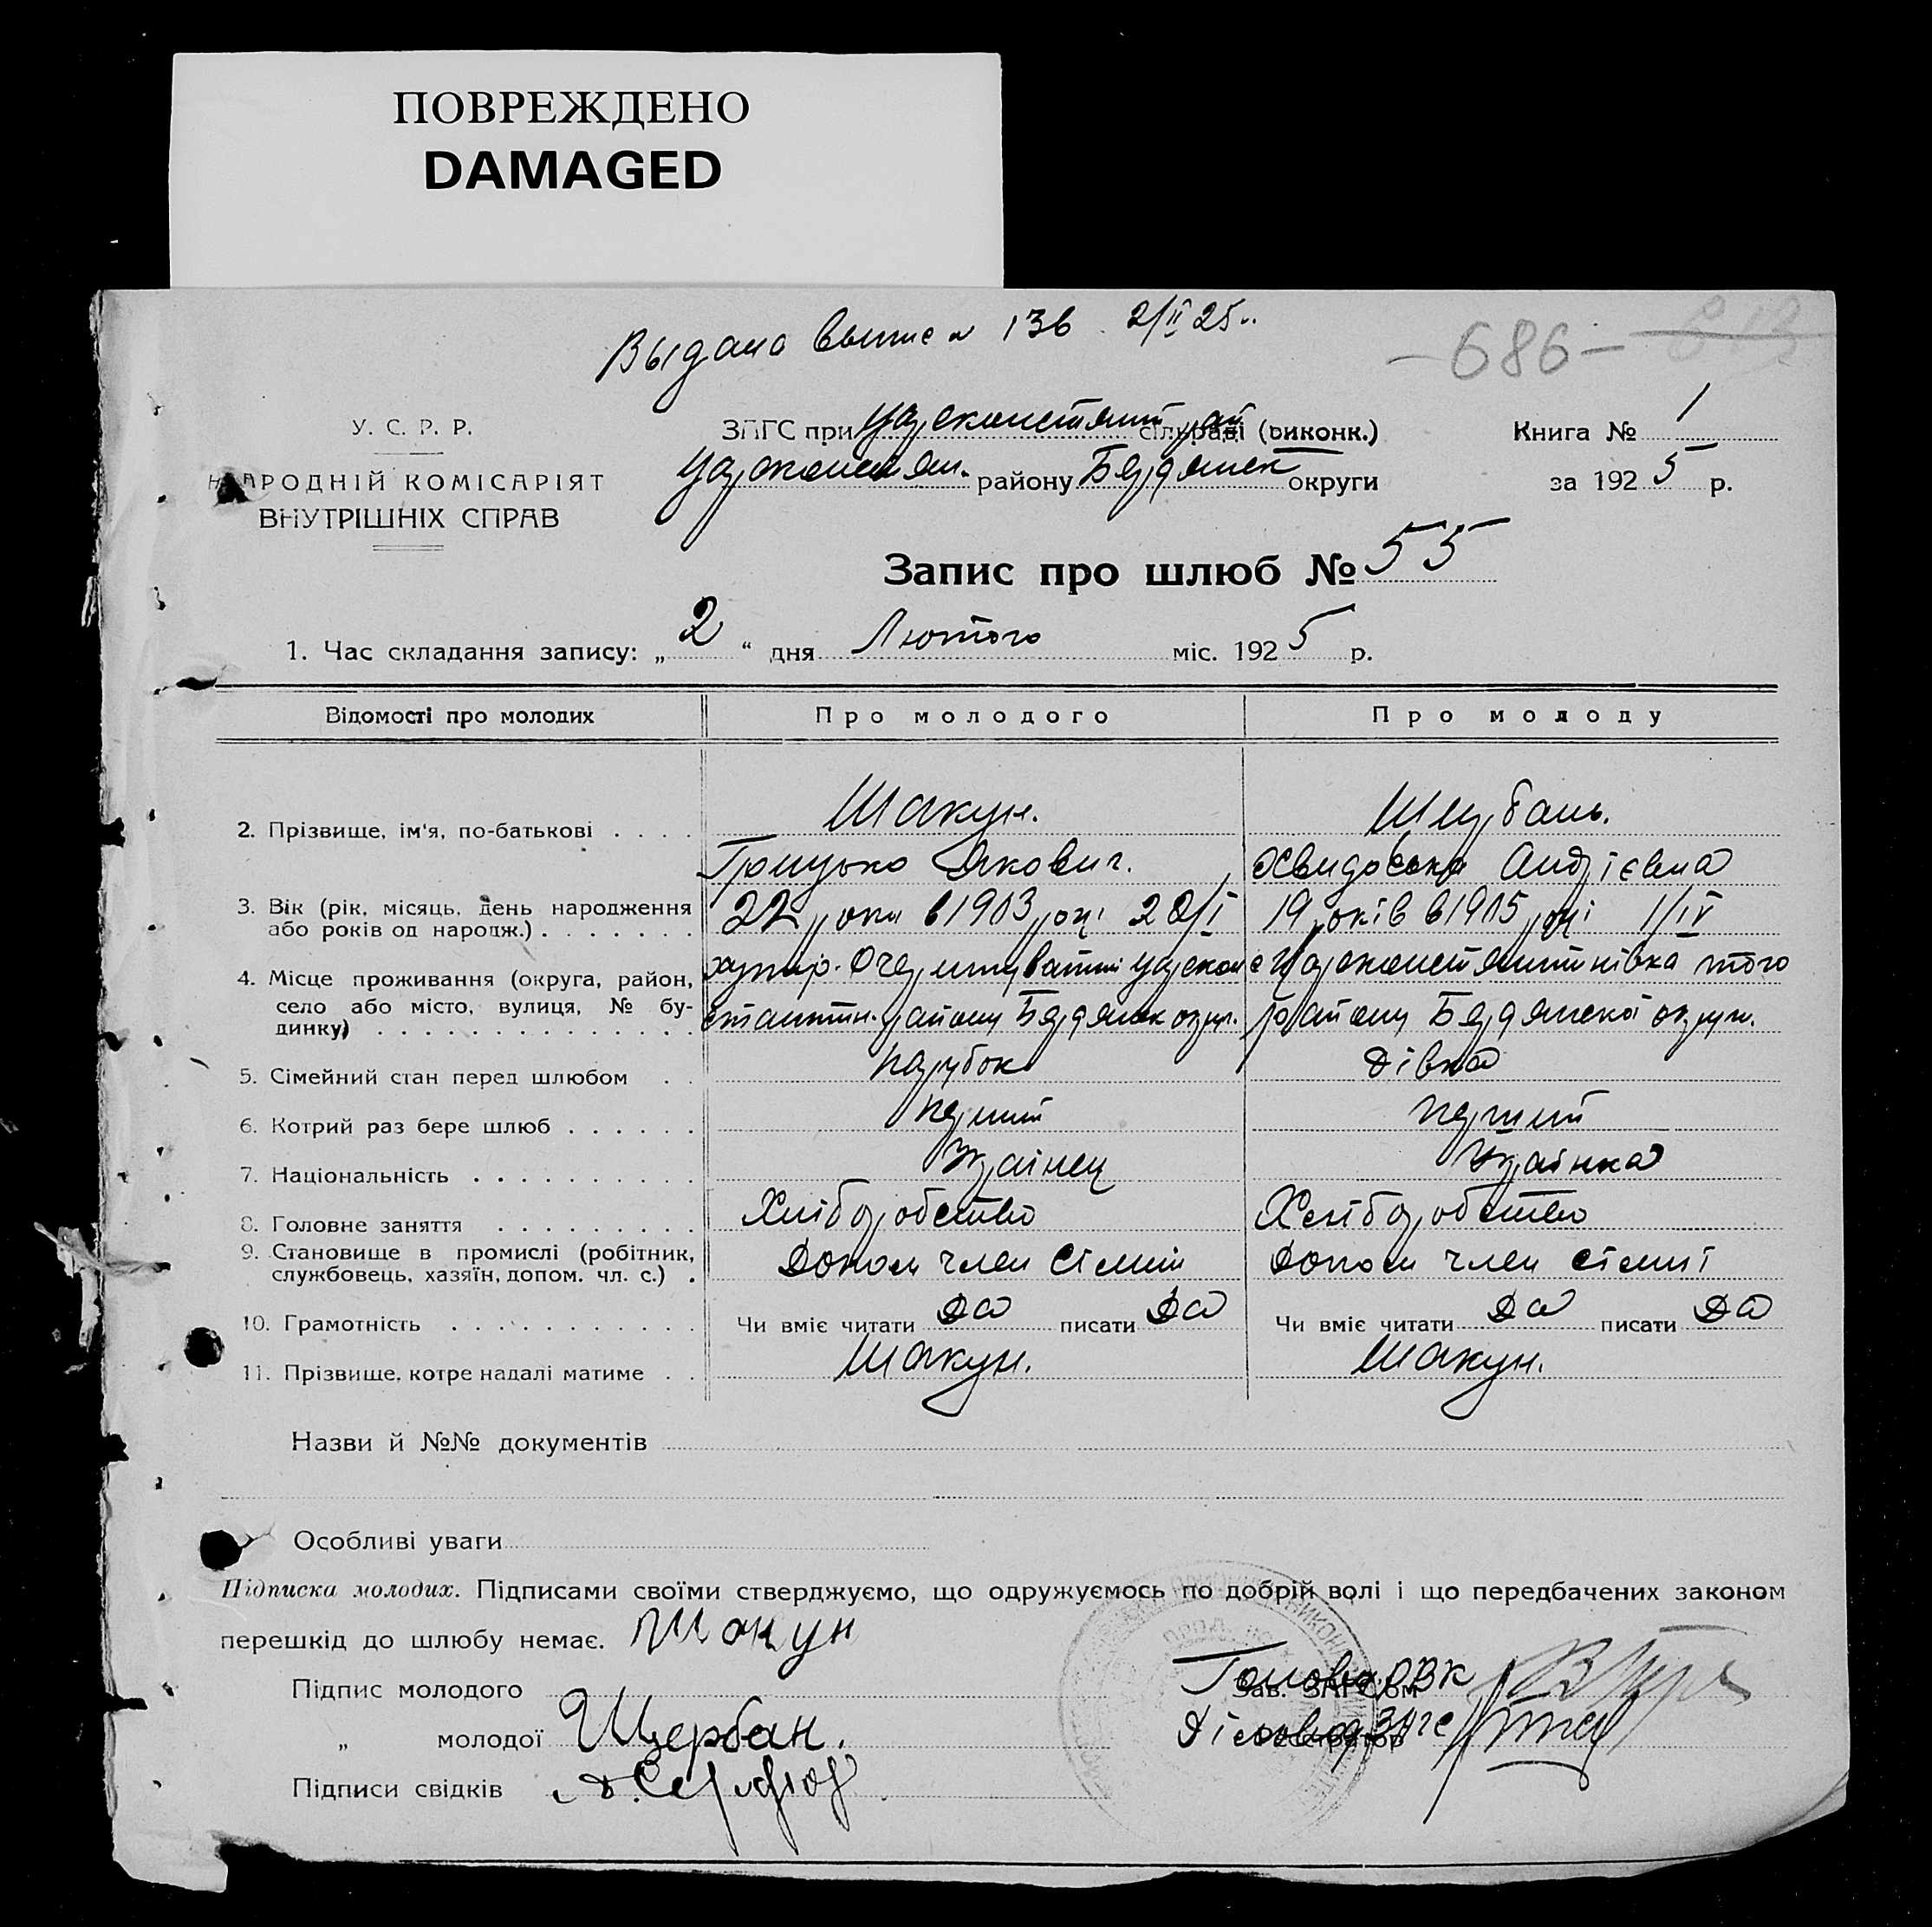 ПОВРЕЖДЕНО
DAMAGED
Выдана выпис № 136 2/II 25 г.
-686-
У. С. Р. Р.
НАРОДНІЙ КОМІСАРІЯТ
ВНУТРІШНІХ СПРАВ
ЗАГС при Цареконстянт рай сільраді (виконк.)
Царсконстян. району Бердянск округи
Книга № 1
за 1925 р.
Запис про шлюб № 55
1. Час складання запису: „2“ дня Лютого міс. 1925 р.
Відомості про молодих Про молодого Про молоду
2. Прізвище, ім'я, по-батькові . . . . Шакун. Щербань.
Грицько Якович. Андрієвна
3. Вік (рік, місяць, день народження або років од народж.) . . . . . . . 22 роки в 1903 році 20/I 19 років в 1905 році 1/IV
4. Місце проживання (округа, район, село або місто, вулиця, № будинку) . . . . . . . . . . . . . . хутір. Очеретуватий Царекон
стантин. району Бердянск округ.
с Царсконстянтинівка того
району Бердянскої округи.
5. Сімейний стан перед шлюбом . . Парубок Дівка
6. Котрий раз бере шлюб . . . . . . Перший Перший
7. Національність . . . . . . . . . . Українец Українка
8. Головне заняття . . . . . . . . . Хліборобство Хліборобство
9. Становище в промислі (робітник, службовець, хазяїн, допом. чл. с.) . Допом член сімьі Допом член сімьі
10. Грамотність . . . . . . . . . . . Чи вміє читати Да писати Да Чи вміє читати Да писати Да
11. Прізвище, котре надалі матиме . . Шакун. Шакун.
Назви й №№ документів
Особливі уваги
Підписка молодих. Підписами своїми стверджуємо, що одружуємось по добрій волі і що передбачених законом
перешкід до шлюбу немає. Шакун
Підпис молодого Голова РВК
Зав. ЗАГС'ом
„ молодої Щербан. Діловод ЗАГС
Реєстратор
Підписи свідків